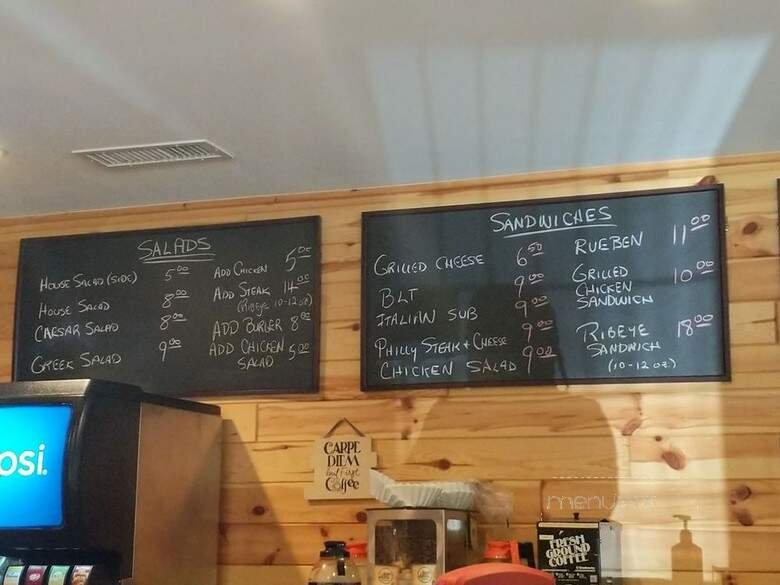 SALADS
HOUSE SALAD (SIDE) 5.00
HOUSE SALAD 8.00
CAESAR SALAD 8.00
GREEK SALAD 9.00
ADD CHICKEN 5.00
ADD STEAK 14.00
(RIBEYE 10-12 oz)
ADD BURGER 8.00
ADD CHICKEN SALAD 5.00
SANDWICHES
GRILLED CHEESE 6.50
BLT 9.00
ITALIAN SUB 9.00
PHILLY STEAK + CHEESE 9.00
CHICKEN SALAD 9.00
RUEBEN 11.00
GRILLED
CHICKEN 10.00
SANDWICH
RIBEYE 18.00
SANDWICH
(10-12 oz.)
osi.
CARPE
DIEM
but First
Coffee
menu
FRESH
GROUND
COFFEE